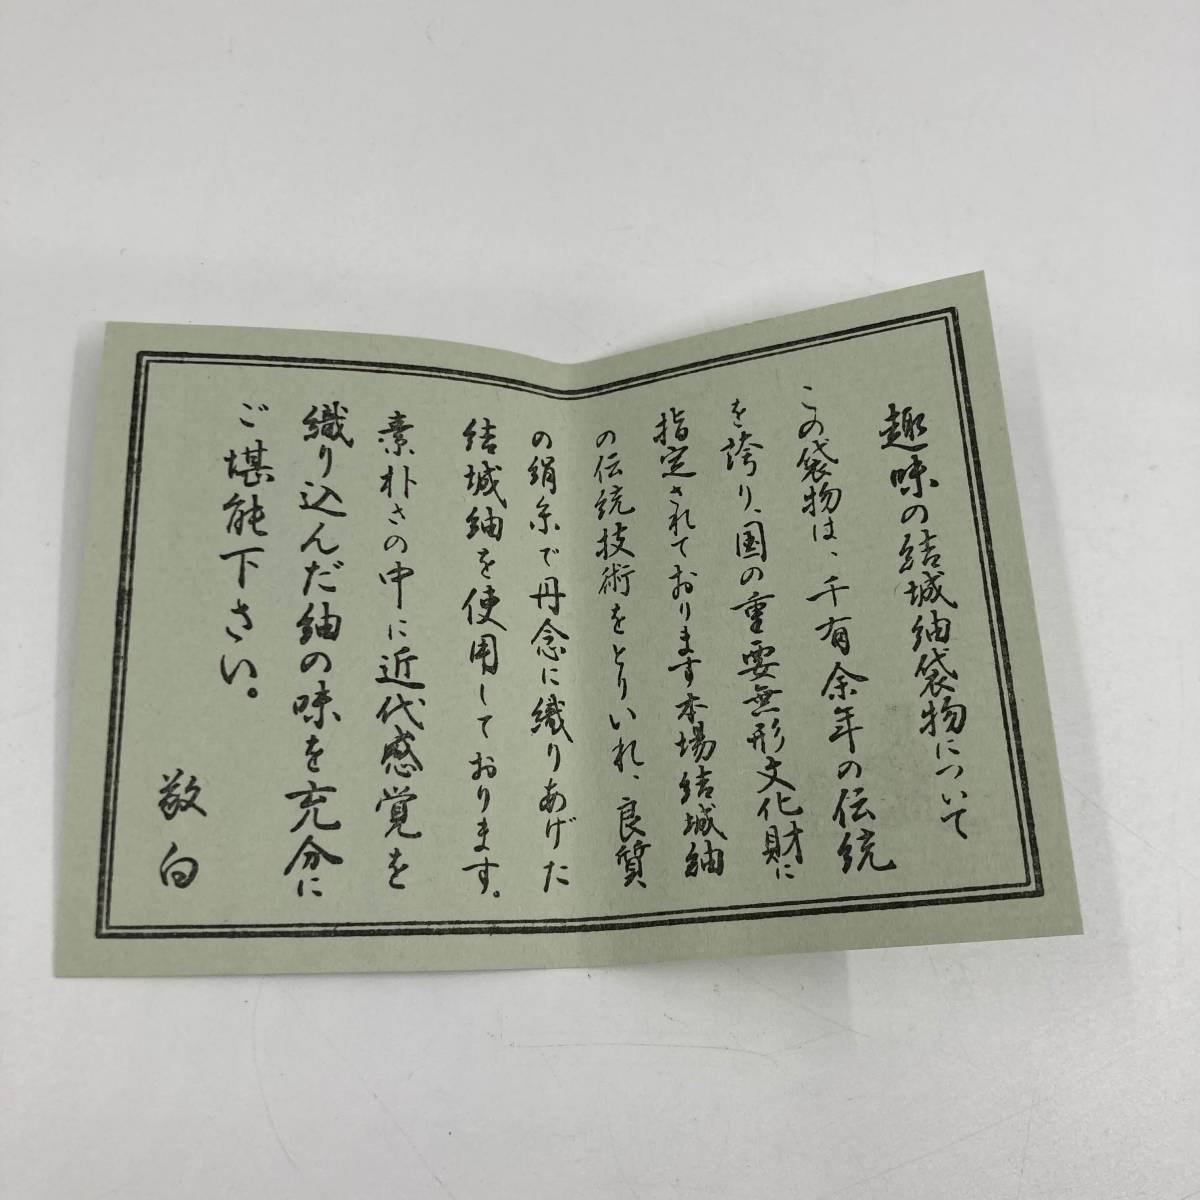 趣味の結城紬袋物について
この袋物は、千有余年の伝統
を誇り、国の重要無形文化財に
指定されております本場結城紬
の伝統技術をとりいれ、良質
の絹糸で丹念に織りあげた
結城紬を使用しております。
素朴さの中に近代感覚を
織り込んだ紬の味を充分に
ご堪能下さい。
敬白